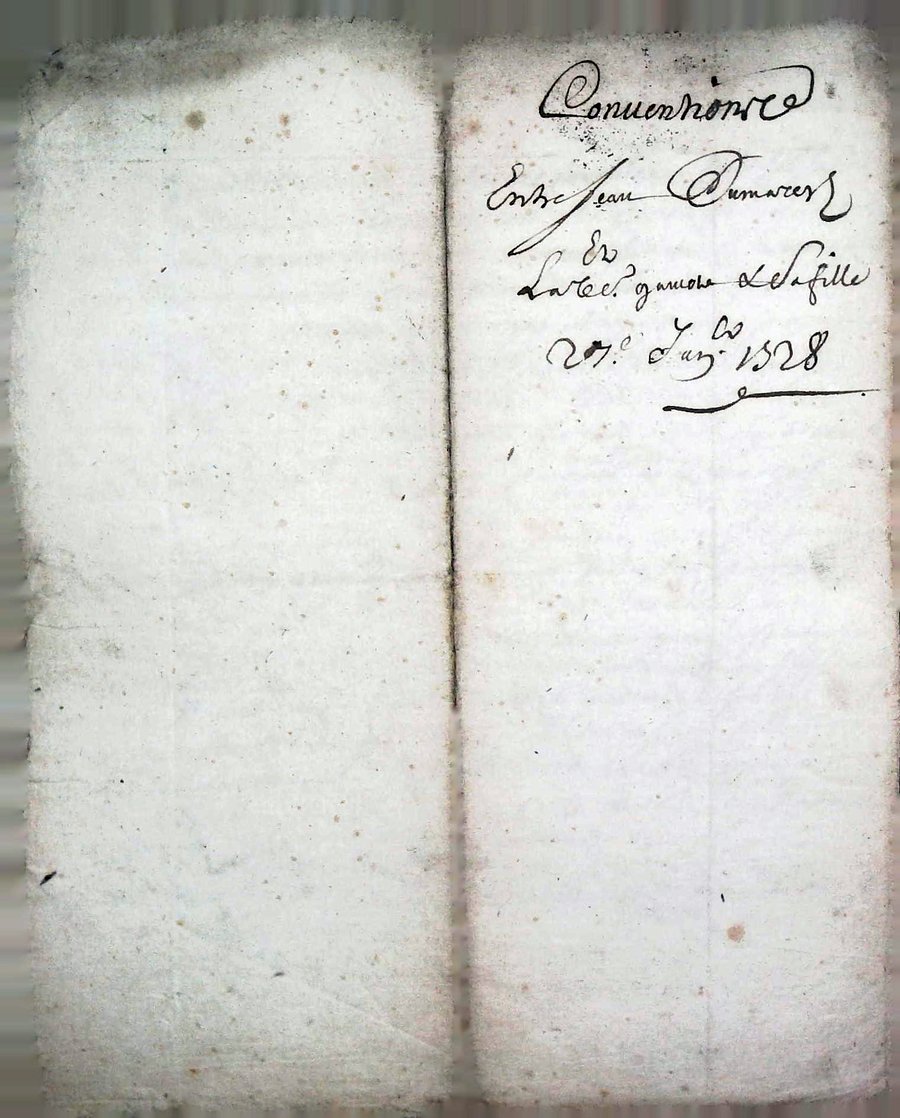 Conventionsce
Entre Jean Dumarest
Et
La ve. gamote & Sa fille
27.e Janv. 1728